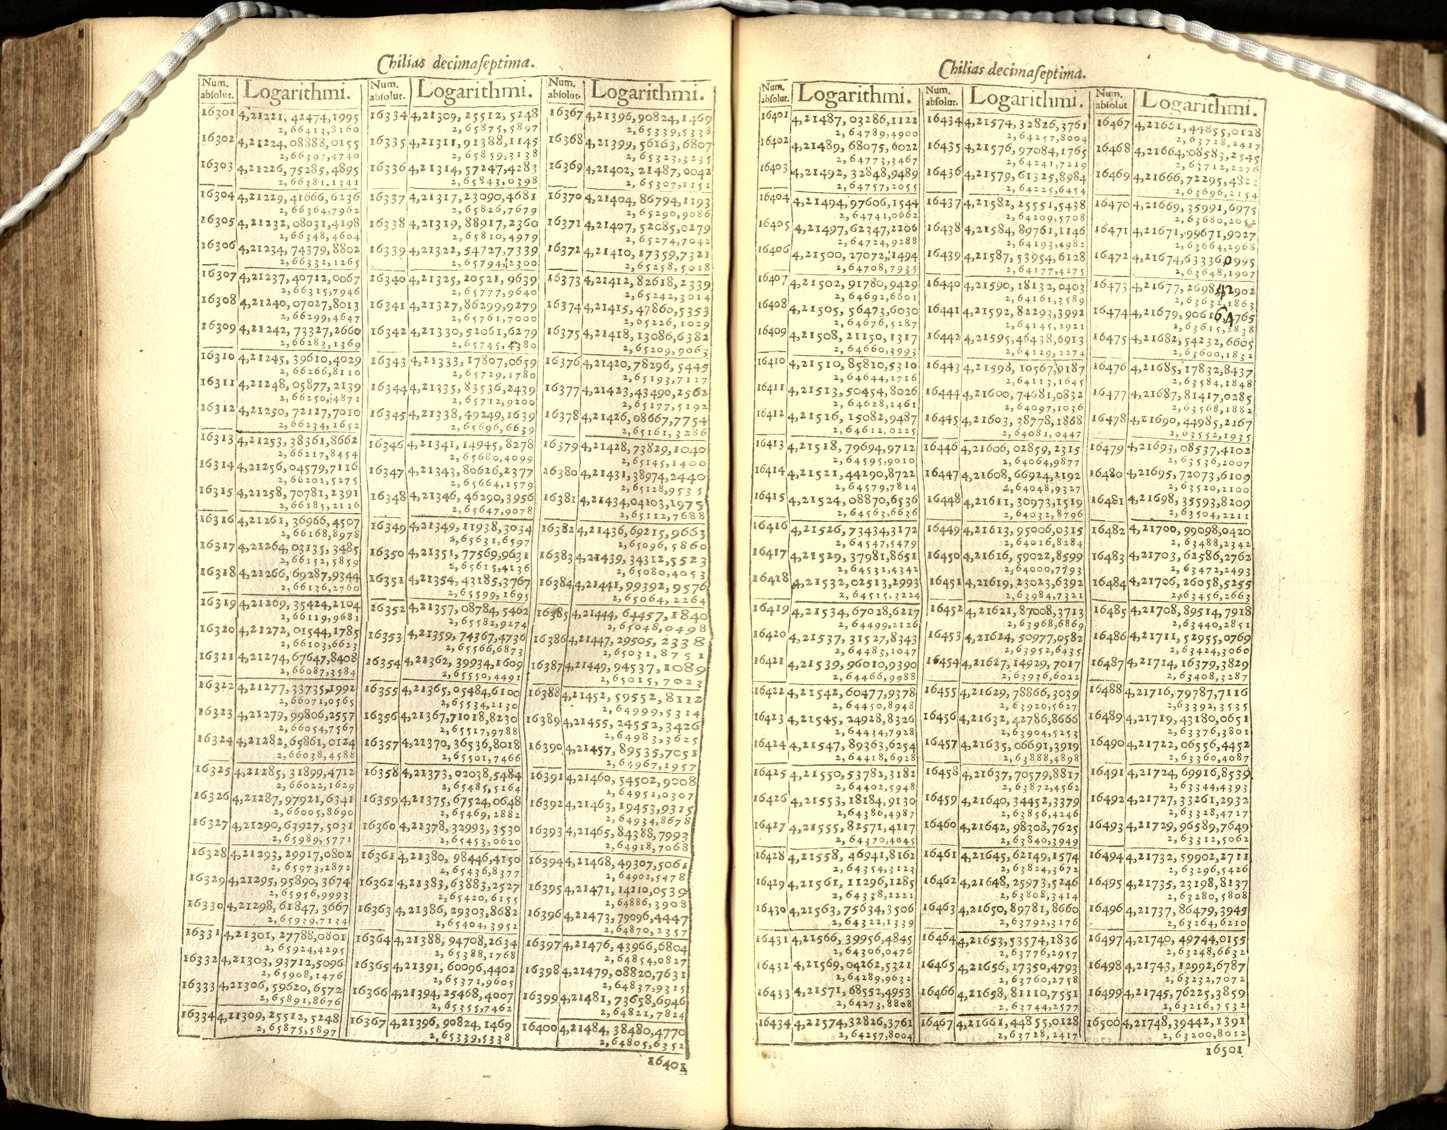 Chilias decimaseptima.
Num. absolut. Logarithmi.
16301 4,21221,42474,1995
2,66413,8160
16302 4,21224,08888,0155
2,66397,4740
16303 4,21226,75285,4895
2,66381,1341
16304 4,21229,41666,6236
2,66364,7962
16305 4,21232,08031,4198
2,66348,4604
16306 4,21234,74379,8802
2,66332,1265
16307 4,21237,40712,0067
2,66315,7946
16308 4,21240,07027,8013
2,66299,4647
16309 4,21242,73327,2660
2,66283,1369
16310 4,21245,39610,4029
2,66266,8110
16311 4,21248,05877,2139
2,66250,4871
16312 4,21250,72127,7010
2,66234,1652
16313 4,21253,38361,8662
2,66217,8454
16314 4,21256,04579,7116
2,66201,5275
16315 4,21258,70781,2391
2,66185,2116
16316 4,21261,36966,4507
2,66168,8978
16317 4,21264,03135,3485
2,66152,5859
16318 4,21266,69287,9344
2,66136,2760
16319 4,21269,35424,2104
2,66119,9681
16320 4,21272,01544,1785
2,66103,6623
16321 4,21274,67647,8408
2,66087,3584
16322 4,21277,33735,1992
2,66071,0565
16323 4,21279,99806,2557
2,66054,7567
16324 4,21282,65861,0124
2,66038,4588
16325 4,21285,31899,4712
2,66022,1629
16326 4,21287,97921,6341
2,66005,8690
16327 4,21290,63927,5031
2,65989,5771
16328 4,21293,29917,0802
2,65973,2872
16329 4,21295,95890,3674
2,65956,9993
16330 4,21298,61847,3667
2,65939,7134
16331 4,21301,27788,0801
2,65924,4295
16332 4,21303,93712,5096
2,65908,1476
16333 4,21306,59620,6572
2,65891,8676
16334 4,21309,25512,5248
2,65875,5897
Num. absolut. Logarithmi.
16334 4,21309,25512,5248
2,65875,5897
16335 4,21311,91388,1145
2,65859,3138
16336 4,21314,57247,4283
2,65843,0398
16337 4,21317,23090,4681
2,65826,7679
16338 4,21319,88917,2360
2,65810,4979
16339 4,21322,54727,7339
2,65794,2300
16340 4,21325,20521,9639
2,65777,9640
16341 4,21327,86299,9279
2,65761,7000
16342 4,21330,52061,6279
2,65745,4380
16343 4,21333,17807,0659
2,65729,1780
16344 4,21335,83536,2439
2,65712,9200
16345 4,21338,49249,1639
2,65696,6639
16346 4,21341,14945,8278
2,65680,4099
16347 4,21343,80626,2377
2,65664,1579
16348 4,21346,46290,3956
2,65647,9078
16349 4,21349,11938,3034
2,65631,6597
16350 4,21351,77569,9631
2,65615,4136
16351 4,21354,43185,3767
2,65599,1695
16352 4,21357,08784,5462
2,65582,9274
16353 4,21359,74367,4736
2,65566,6873
16354 4,21362,39934,1609
2,65550,4491
16355 4,21365,05484,6100
2,65534,2130
16356 4,21367,71018,8230
2,65517,9788
16357 4,21370,36536,8018
2,65501,7466
16358 4,21373,02038,5484
2,65485,5164
16359 4,21375,67524,0648
2,65469,2882
16360 4,21378,32993,3530
2,65453,0620
16361 4,21380,98446,4150
2,65436,8377
16362 4,21383,63883,2527
2,65420,6155
16363 4,21386,29303,8682
2,65404,3952
16364 4,21388,94708,2634
2,65388,1768
16365 4,21391,60096,4402
2,65371,9605
16366 4,21394,25468,4007
2,65355,7462
16367 4,21396,90824,1469
2,65339,5338
Num. absolut. Logarithmi.
16367 4,21396,90824,1469
2,65339,5338
16368 4,21399,56163,6807
2,65323,3235
16369 4,21402,21487,0042
2,65307,1151
16370 4,21404,86794,1193
2,65290,9086
16371 4,21407,52085,0279
2,65274,7042
16372 4,21410,17359,7321
2,65258,5018
16373 4,21412,82618,2339
2,65242,3014
16374 4,21415,47860,5353
2,65226,1029
16375 4,21418,13086,6382
2,65209,9063
16376 4,21420,78296,5445
2,65193,7117
16377 4,21423,43490,2562
2,65177,5192
16378 4,21426,08667,7754
2,65161,3286
16379 4,21428,73829,1040
2,65145,1400
16380 4,21431,38974,2440
2,65128,9535
16381 4,21434,04103,1975
2,65112,7688
16382 4,21436,69215,9663
2,65096,5860
16383 4,21439,34312,5523
2,65080,4053
16384 4,21441,99392,9576
2,65064,2264
16385 4,21444,64457,1840
2,65048,0498
16386 4,21447,29505,2338
2,65031,8751
16387 4,21449,94537,1089
2,65015,7023
16388 4,21452,59552,8112
2,64999,5314
16389 4,21455,24552,3426
2,64983,3625
16390 4,21457,89535,7051
2,64967,1957
16391 4,21460,54502,9008
2,64951,0307
16392 4,21463,19453,9315
2,64934,8678
16393 4,21465,84388,7993
2,64918,7068
16394 4,21468,49307,5061
2,64902,5478
16395 4,21471,14210,0539
2,64886,3908
16396 4,21473,79096,4447
2,64870,2357
16397 4,21476,43966,6804
2,64854,0827
16398 4,21479,08820,7631
2,64837,9315
16399 4,21481,73658,6946
2,64821,7824
16400 4,21484,38480,4770
2,64805,6352
16401
Chilias decimaseptima.
Num. absolut. Logarithmi.
16401 4,21487,03286,1121
2,64789,4900
16402 4,21489,68075,6022
2,64773,3467
16403 4,21492,32848,9489
2,64757,2055
16404 4,21494,97606,1544
2,64741,0662
16405 4,21497,62347,2206
2,64724,9288
16406 4,21500,27072,1494
2,64708,7935
16407 4,21502,91780,9429
2,64692,6601
16408 4,21505,56473,6030
2,64676,5287
16409 4,21508,21150,1317
2,64660,3993
16410 4,21510,85810,5310
2,64644,2716
16411 4,21513,50454,8026
2,64628,1461
16412 4,21516,15082,9487
2,64612,0225
16413 4,21518,79694,9712
2,64595,9010
16414 4,21521,44290,8722
2,64579,7814
16415 4,21524,08870,6536
2,64563,6636
16416 4,21526,73434,3172
2,64547,5479
16417 4,21529,37981,8651
2,64531,4342
16418 4,21532,02513,2993
2,64515,3224
16419 4,21534,67028,6217
2,64499,2126
16420 4,21537,31527,8343
2,64483,1047
16421 4,21539,96010,9390
2,64466,9988
16422 4,21542,60477,9378
2,64450,8948
16423 4,21545,24928,8326
2,64434,7928
16424 4,21547,89363,6254
2,64418,6928
16425 4,21550,53782,3182
2,64402,5948
16426 4,21553,18184,9130
2,64386,4987
16427 4,21555,82571,4117
2,64370,4045
16428 4,21558,46941,8162
2,64354,3123
16429 4,21561,11296,1285
2,64338,2221
16430 4,21563,75634,3506
2,64322,1339
16431 4,21566,39956,4845
2,64306,0476
16432 4,21569,04262,5321
2,64289,9632
16433 4,21571,68552,4953
2,64273,8808
16434 4,21574,32826,3761
2,64257,8004
Num. absolut. Logarithmi.
16434 4,21574,32826,3761
2,64257,8004
16435 4,21576,97084,1765
2,64241,7219
16436 4,21579,61325,8984
2,64225,6454
16437 4,21582,25551,5438
2,64109,5708
16438 4,21584,89761,1146
2,64193,4982
16439 4,21587,53954,6128
2,64177,4275
16440 4,21590,18132,0403
2,64161,3589
16441 4,21592,82293,3992
2,64145,2921
16442 4,21595,46438,6913
2,64129,2274
16443 4,21598,10567,9187
2,64113,1645
16444 4,21600,74681,0832
2,64097,1036
16445 4,21603,38778,1868
2,64081,0447
16446 4,21606,02859,2315
2,64064,9877
16447 4,21608,66924,2192
2,64048,9327
16448 4,21611,30973,1519
2,64032,8796
16449 4,21613,95006,0315
2,64016,8284
16450 4,21616,59022,8599
2,64000,7793
16451 4,21619,23023,6392
2,63984,7321
16452 4,21621,87008,3713
2,63968,6869
16453 4,21624,50977,0582
2,63952,6435
16454 4,21627,14929,7017
2,63936,6022
16455 4,21629,78866,3039
2,63920,5627
16456 4,21632,42786,8666
2,63904,5253
16457 4,21635,06691,3919
2,63888,4898
16458 4,21637,70579,8817
2,63872,4562
16459 4,21640,34452,3379
2,63856,4246
16460 4,21642,98308,7625
2,63840,3949
16461 4,21645,62149,1574
2,63824,3672
16462 4,21648,25973,5246
2,63808,3414
16463 4,21650,89781,8660
2,63792,3176
16464 4,21653,53574,1836
2,63776,2957
16465 4,21656,17350,4793
2,63760,2758
16466 4,21658,81110,7551
2,63744,2577
16467 4,21661,44855,0128
2,63728,2417
Num. absolut. Logarithmi.
16467 4,21661,44855,0128
2,63728,2417
16468 4,21664,08583,2545
2,63712,2276
16469 4,21666,72295,4821
2,63696,2154
16470 4,21669,35991,6975
2,63680,2052
16471 4,21671,99671,9027
2,63664,1968
16472 4,21674,63336,0995
2,63648,1907
16473 4,21677,26984,2902
2,63632,1863
16474 4,21679,90616,4765
2,63615,1838
16475 4,21682,54232,6605
2,63600,1832
16476 4,21685,17832,8437
2,63584,1848
16477 4,21687,81417,0285
2,63568,1882
16478 4,21690,44985,2167
2,63552,1935
16479 4,21693,08537,4102
2,63536,2007
16480 4,21695,72073,6109
2,63520,2100
16481 4,21698,35593,8209
2,63504,2211
16482 4,21700,99098,0420
2,63488,2342
16483 4,21703,62586,2762
2,63472,2493
16484 4,21706,26058,5255
2,63456,2663
16485 4,21708,89514,7918
2,63440,2851
16486 4,21711,52955,0769
2,63424,3060
16487 4,21714,16379,3829
2,63408,3287
16488 4,21716,79787,7116
2,63392,3535
16489 4,21719,43180,0651
2,63376,3801
16490 4,21722,06556,4452
2,63360,4087
16491 4,21724,69916,8539
2,63344,4393
16492 4,21727,33261,2932
2,63328,4717
16493 4,21729,96589,7649
2,63312,5062
16494 4,21732,59902,2711
2,63296,5426
16495 4,21735,23198,8137
2,63280,5808
16496 4,21737,86479,3945
2,63264,6210
16497 4,21740,49744,0155
2,63248,6632
16498 4,21743,12992,6787
2,63232,7072
16499 4,21745,76225,3859
2,63216,7532
16500 4,21748,39442,1391
2,63200,8012
16501